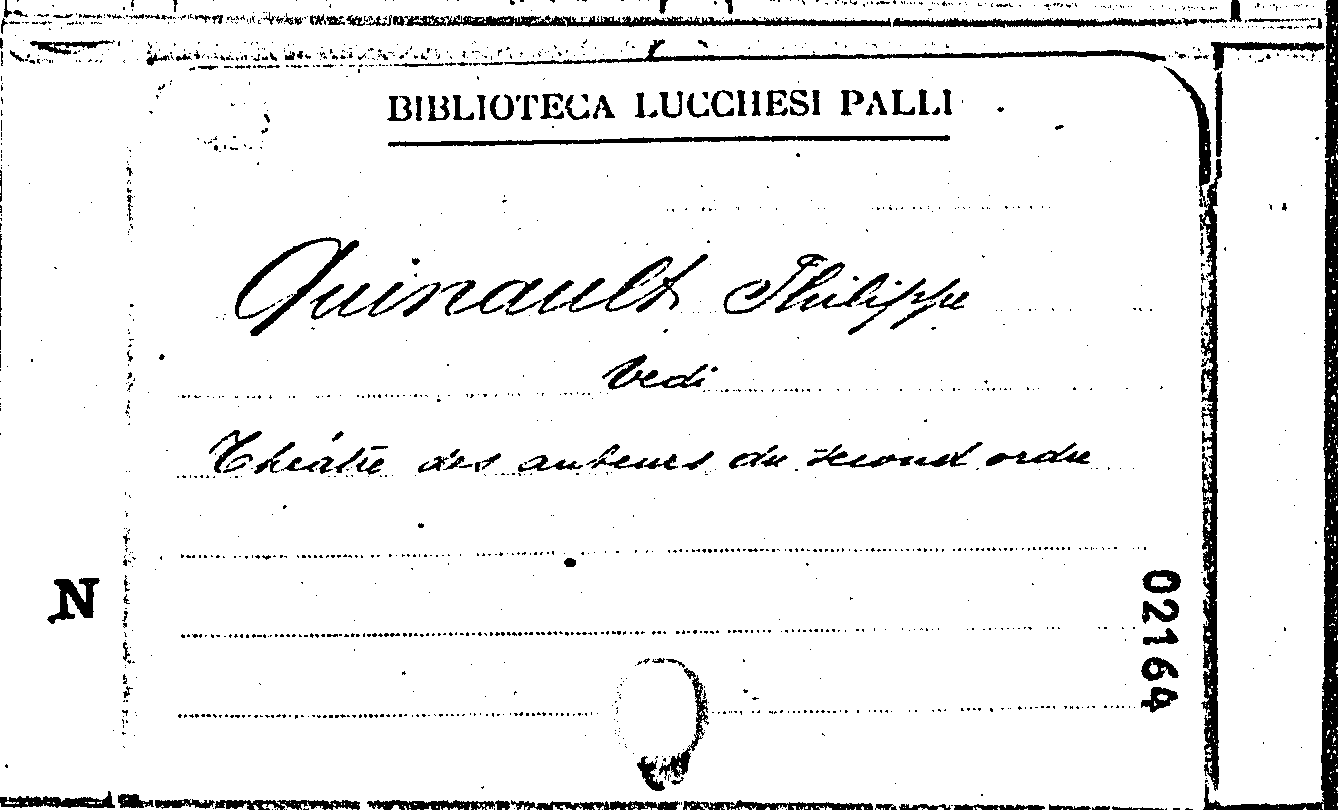 BIBLIOTECA LUCCHESI PALLI
Quinault Philippe
Vedi
Théâtre des auteurs du second ordre
N
02164